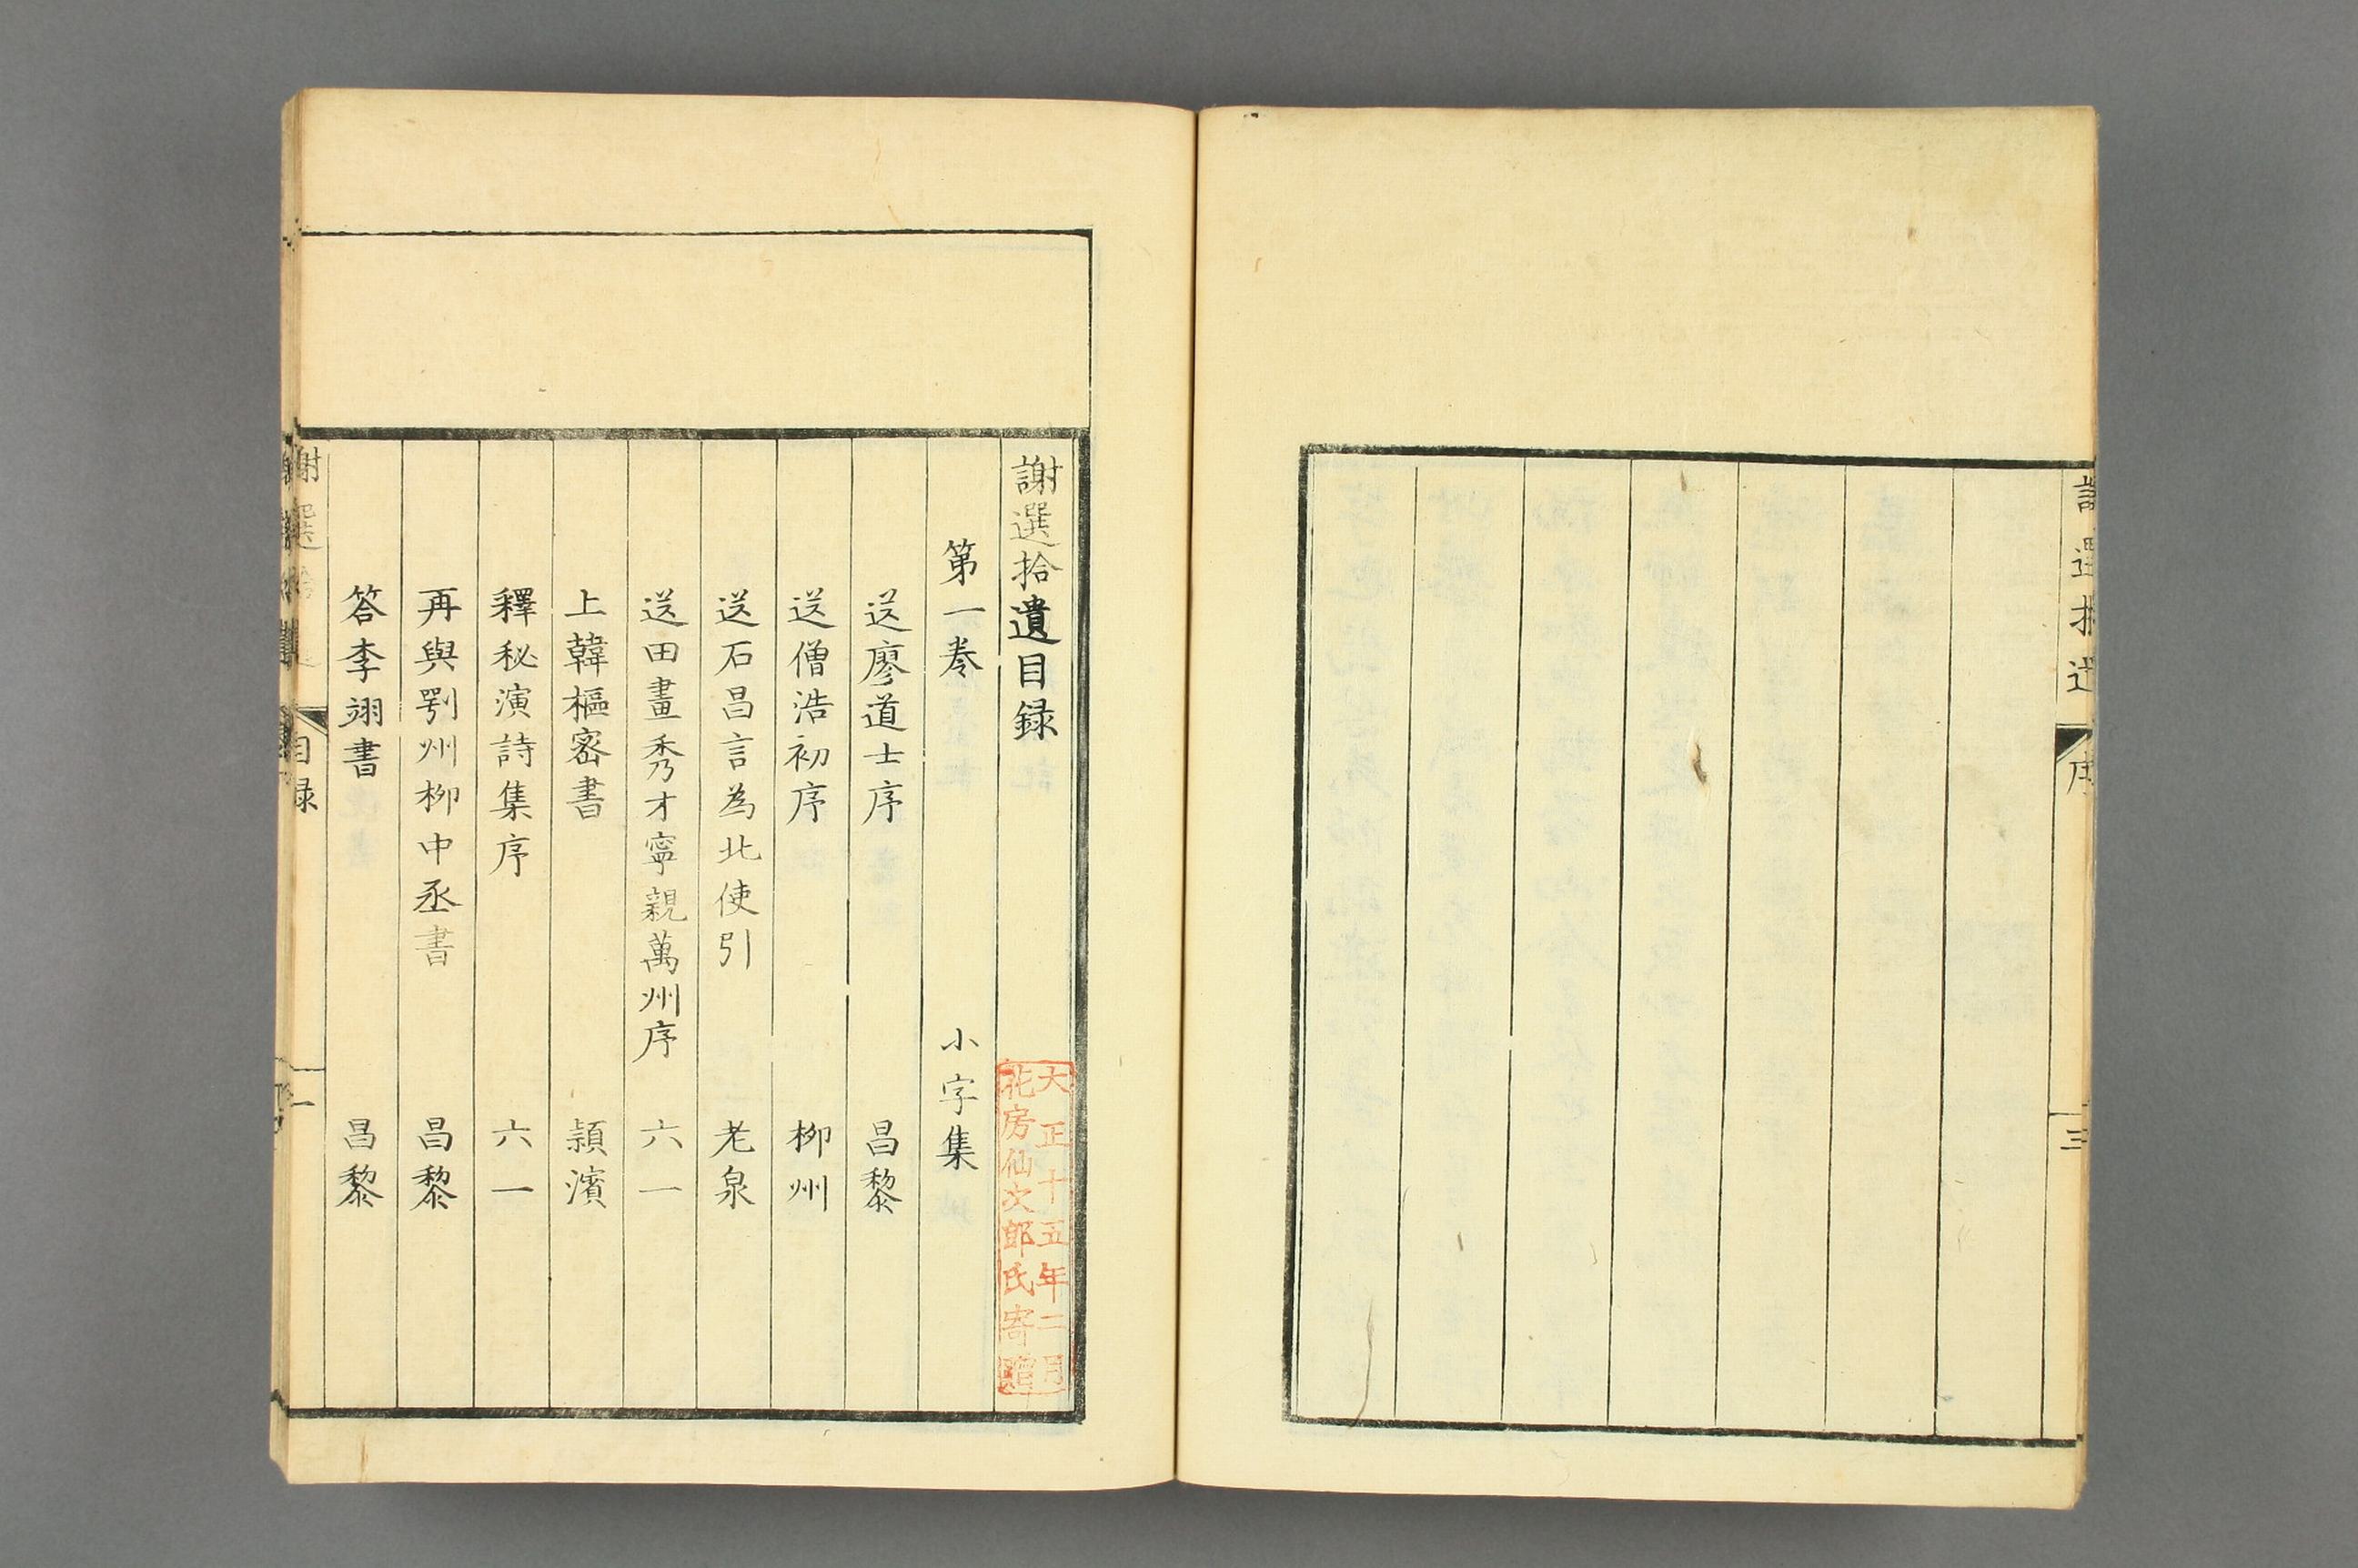 謝選拾遺
序
三
謝選拾遺目録
大正十五年二月
花房仙次郎氏寄贈
第一巻 小字集
送廖道士序 昌黎
送僧浩初序 柳州
送石昌言為北使引 老泉
送田畫秀才寧親萬州序 六一
上韓樞密書 潁濱
釋秘演詩集序 六一
再與鄂州柳中丞書 昌黎
答李翊書 昌黎
謝選拾遺
目録
一